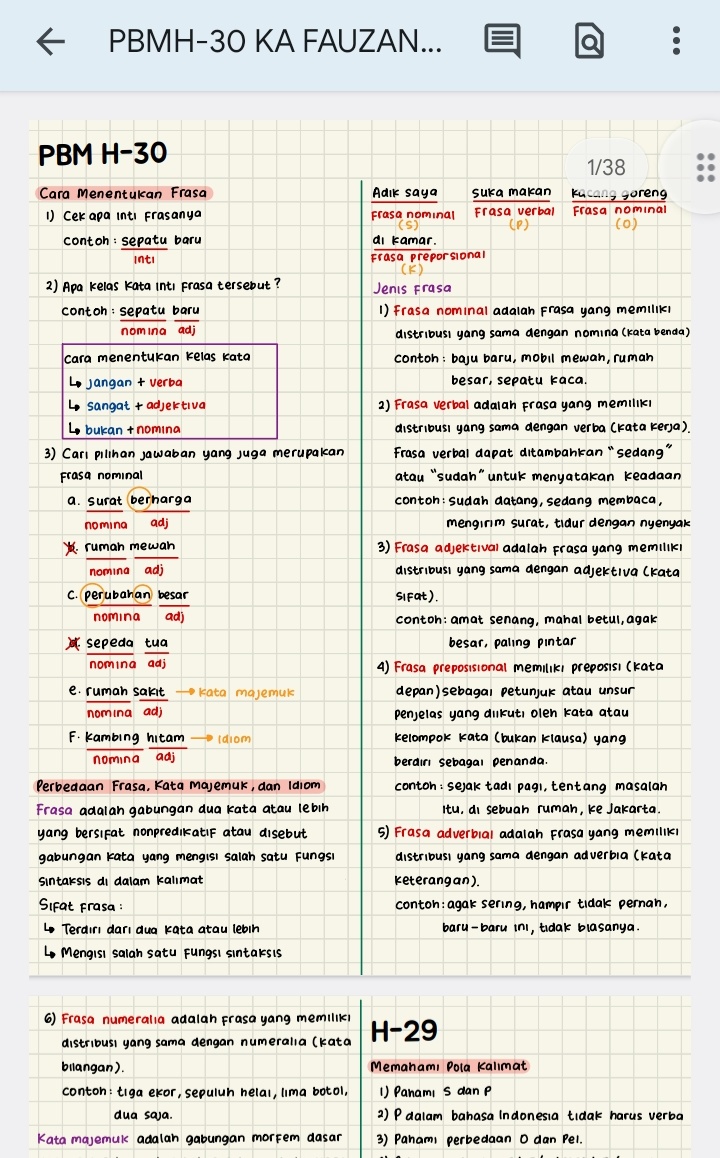 PBMH-30 KA FAUZAN...
1/38
PBM H-30
Cara Menentukan Frasa
1) Cek apa inti frasanya
contoh : sepatu baru
inti
2) Apa kelas kata inti frasa tersebut?
contoh : sepatu baru
nomina adj
Cara menentukan kelas kata
↳ jangan + verba
↳ sangat + adjektiva
↳ bukan + nomina
3) Cari pilihan jawaban yang juga merupakan
frasa nominal
a. surat berharga
nomina adj
b. rumah mewah
nomina adj
c. perubahan besar
nomina adj
d. sepeda tua
nomina adj
e. rumah sakit → kata majemuk
nomina adj
F. kambing hitam → idiom
nomina adj
Perbedaan Frasa, Kata Majemuk, dan Idiom
Frasa adalah gabungan dua kata atau lebih
yang bersifat nonpredikatif atau disebut
gabungan kata yang mengisi salah satu fungsi
sintaksis di dalam kalimat
Sifat frasa :
↳ Terdiri dari dua kata atau lebih
↳ Mengisi salah satu fungsi sintaksis
Adik saya suka makan kacang goreng
Frasa nominal Frasa verbal Frasa nominal
(S) (P) (O)
di kamar.
Frasa preporsional
(K)
Jenis Frasa
1) Frasa nominal adalah frasa yang memiliki
distribusi yang sama dengan nomina (kata benda)
contoh : baju baru, mobil mewah, rumah
besar, sepatu kaca.
2) Frasa verbal adalah frasa yang memiliki
distribusi yang sama dengan verba (kata kerja).
Frasa verbal dapat ditambahkan "sedang"
atau "sudah" untuk menyatakan keadaan
contoh: sudah datang, sedang membaca,
mengirim surat, tidur dengan nyenyak
3) Frasa adjektival adalah frasa yang memiliki
distribusi yang sama dengan adjektiva (kata
sifat).
contoh: amat senang, mahal betul, agak
besar, paling pintar
4) Frasa preposisional memiliki preposisi (kata
depan) sebagai petunjuk atau unsur
penjelas yang diikuti oleh kata atau
kelompok kata (bukan klausa) yang
berdiri sebagai penanda.
contoh : sejak tadi pagi, tentang masalah
itu, di sebuah rumah, ke Jakarta.
5) Frasa adverbial adalah frasa yang memiliki
distribusi yang sama dengan adverbia (kata
keterangan).
contoh: agak sering, hampir tidak pernah,
baru-baru ini, tidak biasanya.
6) Frasa numeralia adalah frasa yang memiliki
distribusi yang sama dengan numeralia (kata
bilangan).
contoh : tiga ekor, sepuluh helai, lima botol,
dua saja.
Kata majemuk adalah gabungan morfem dasar
H-29
Memahami Pola Kalimat
1) Pahami S dan P
2) P dalam bahasa Indonesia tidak harus verba
3) Pahami perbedaan O dan Pel.